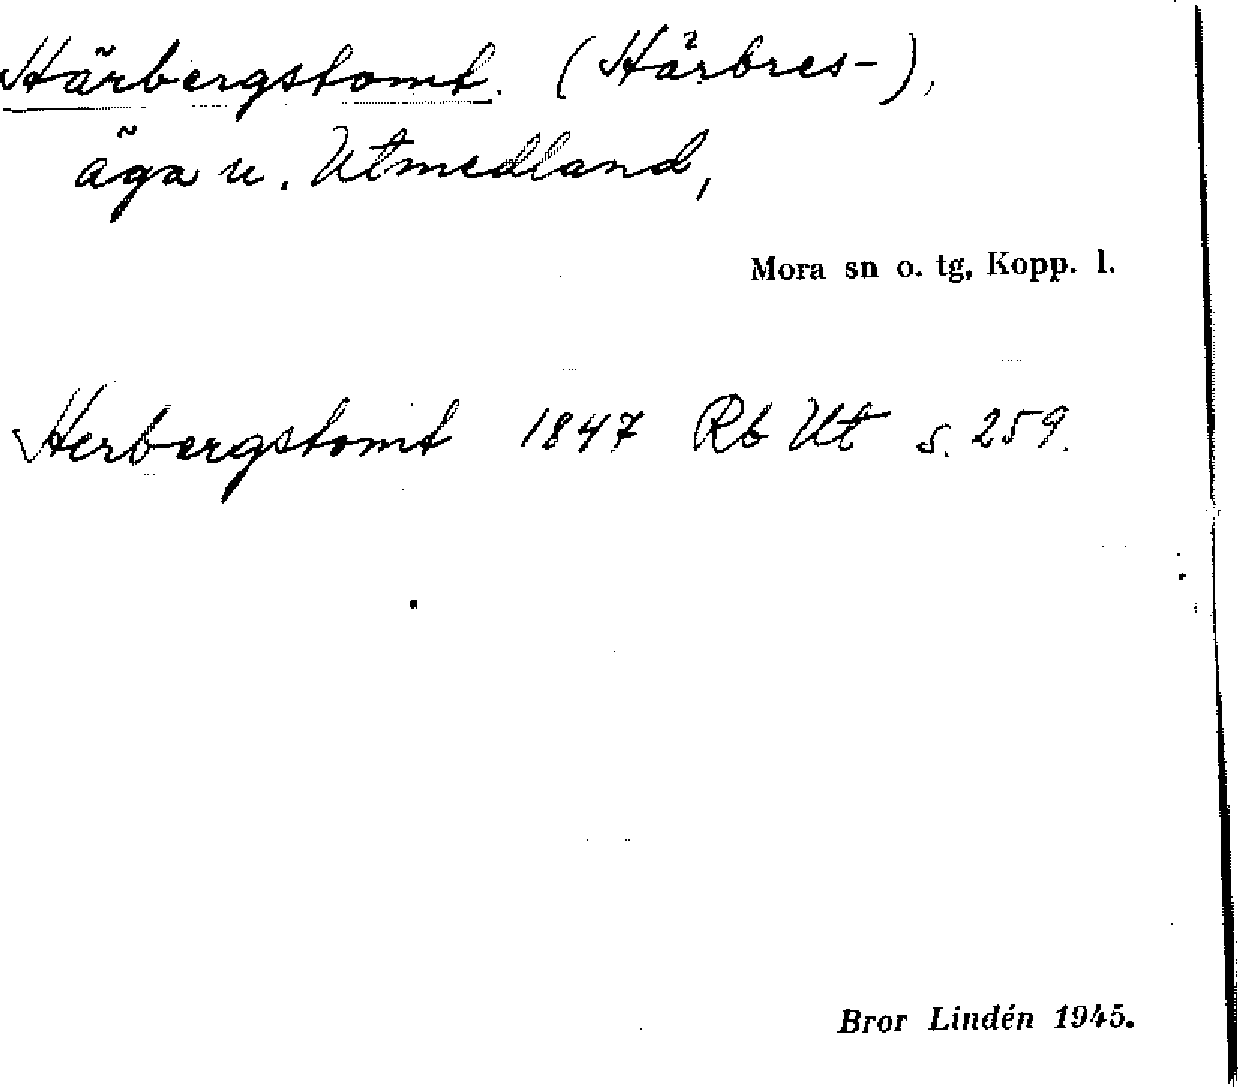 Härbergstomt. (Härbres-),
äga u. Utmedland,
Mora sn o. tg, Kopp. l.
Herbergstomt 1847 Rb Ut s. 259.
Bror Lindén 1945.